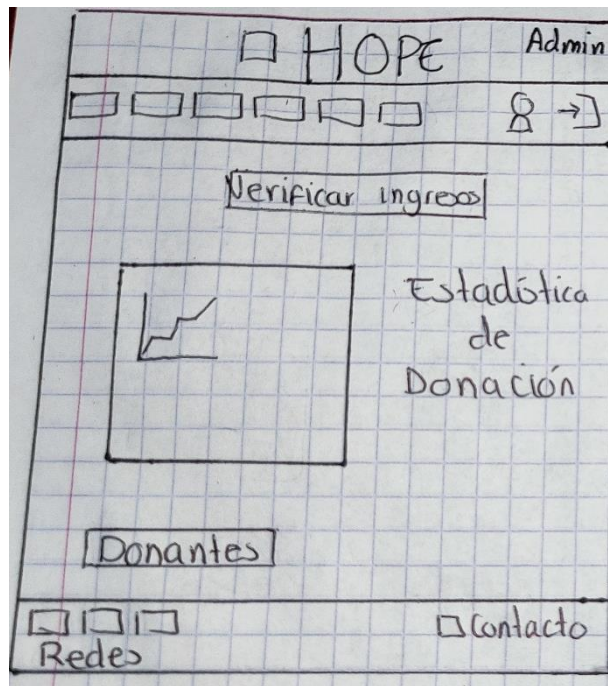 HOPE
Admin
Verificar ingresos
Estadística
de
Donación
Donantes
Redes
Contacto